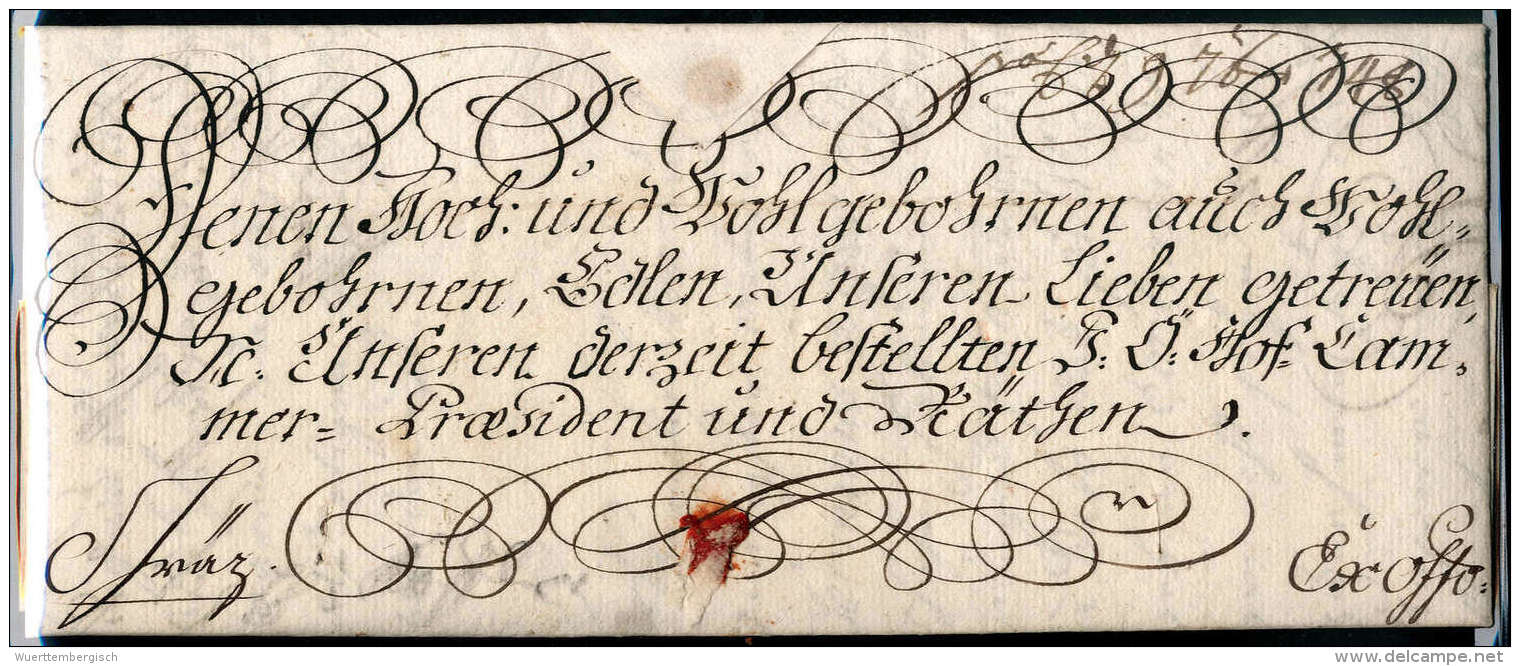 Denen Hoch: und Wohlgebohrnen auch Wohl=
gebohrnen, Edlen, Unseren Lieben getreüen,
Unseren derzeit bestellten I: Ö: Hof= Cam=
mer= Præsident und Räthen
Gräz.
Ex offo:
Wuerttembergisch
delcampe.net